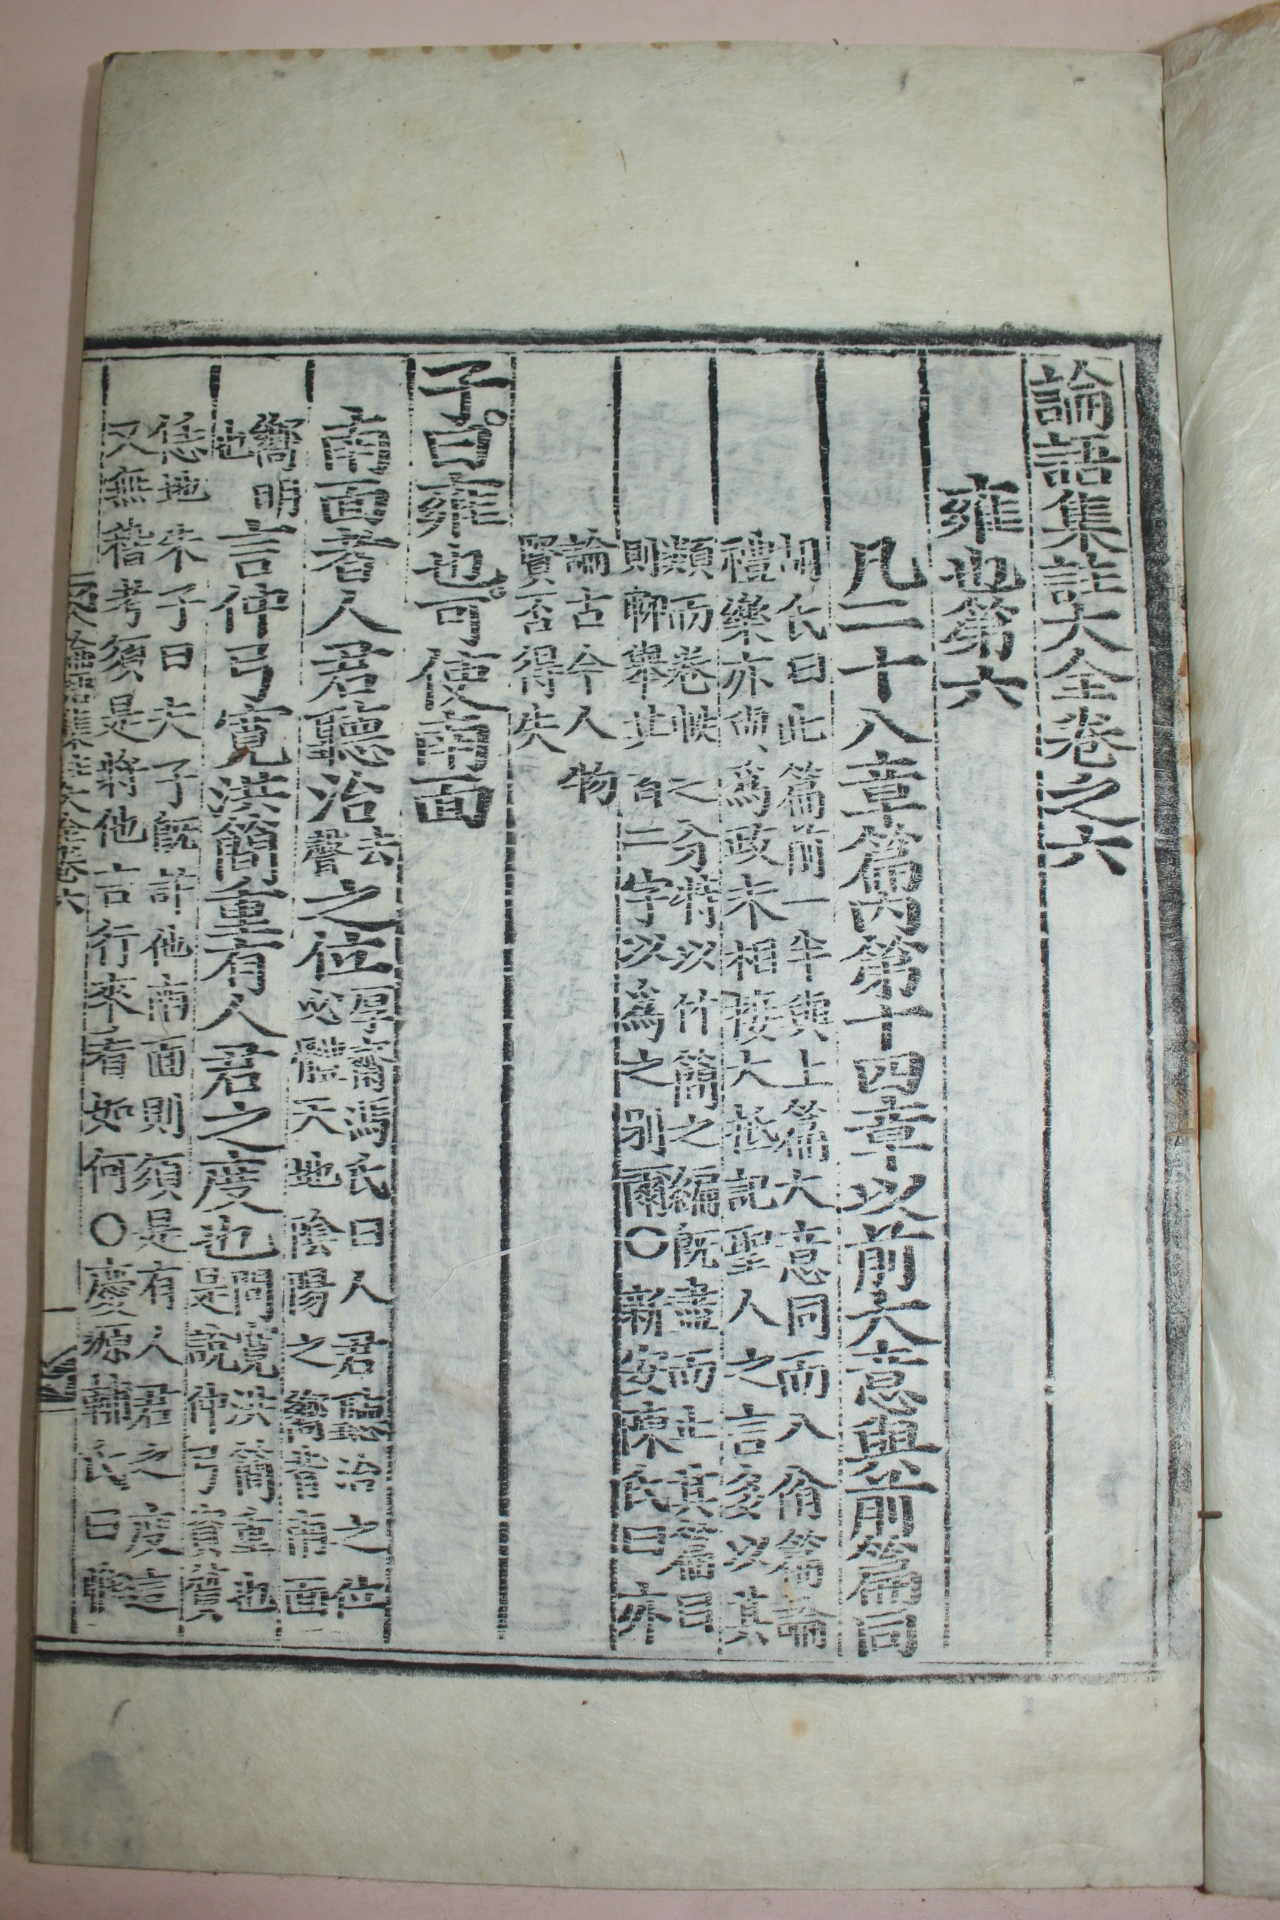 論語集註大全卷之六
雍也第六
凡二十八章篇內第十四章以前大意與前篇同
胡氏曰此篇前一半與上篇大意同而八佾篇論
禮樂亦與爲政末相接大抵記聖人之言多以其
類而卷帙之分特以竹簡之編旣盡而止其篇目
則聊擧其首二字以爲之別爾○新安陳氏曰亦
論古今人物
賢否得失
子曰雍也可使南面
南面者人君聽治去聲之位
厚齋馮氏曰人君聽治之位
必體天地陰陽之嚮背南面
嚮明
也
言仲弓寬洪簡重有人君之度也
問寬洪簡重也
是說仲弓資質
恁地朱子曰夫子旣許他南面則須是有人君之度這
又無稽考須是將他言行來看如何○慶源輔氏曰